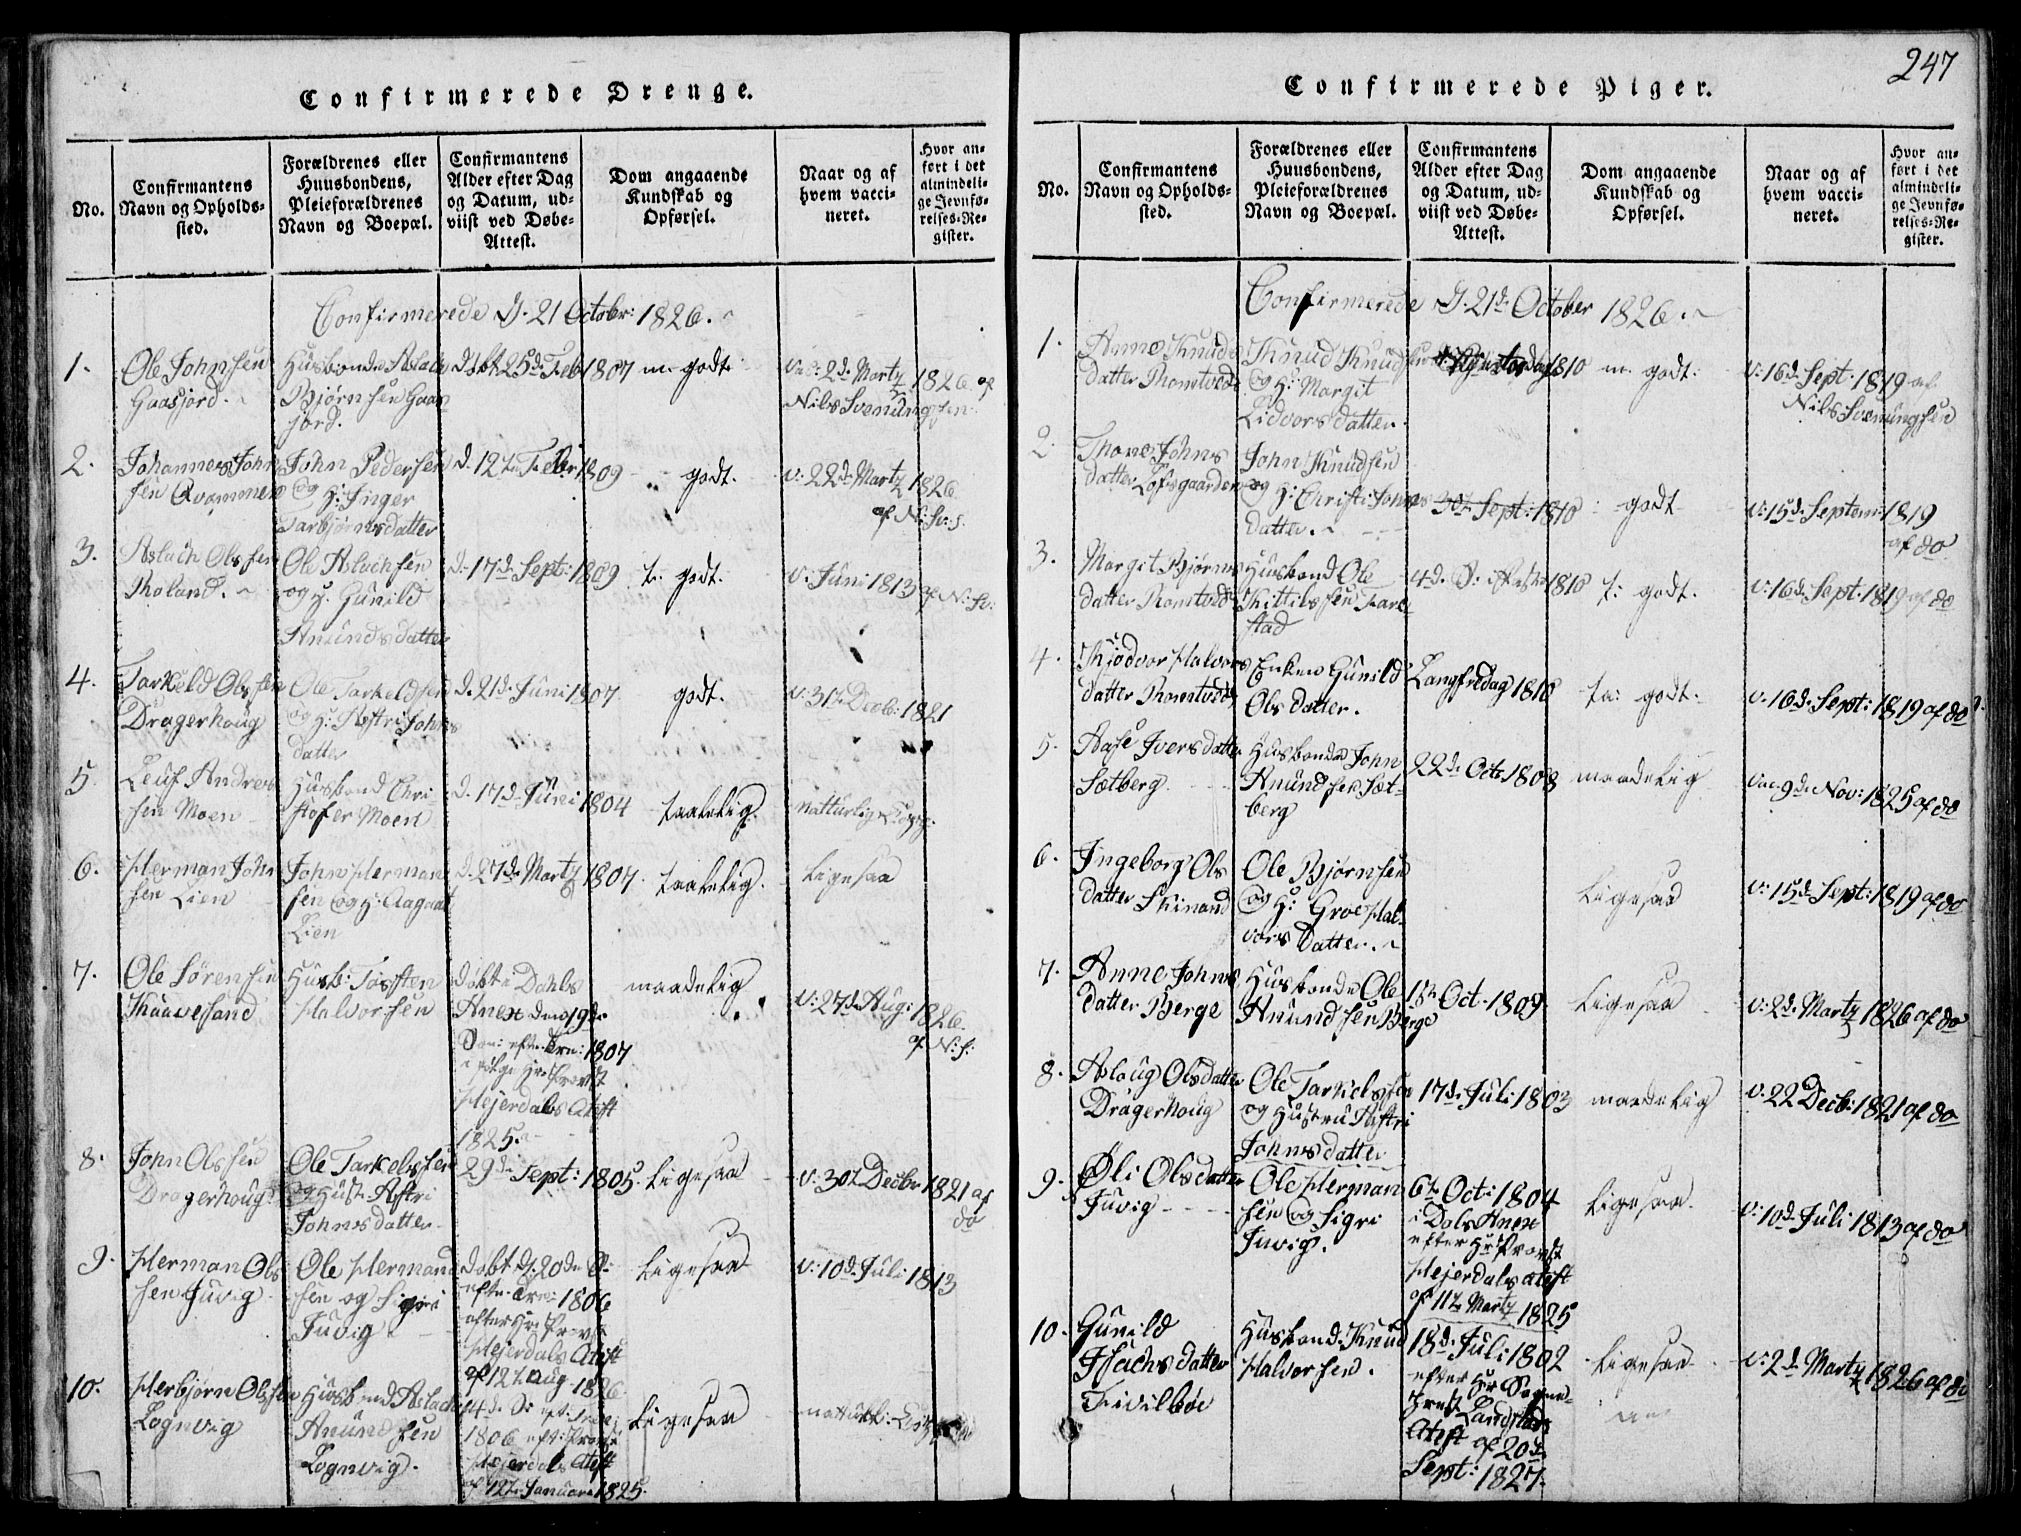 Confirmerede Drenge.
No.
Confirmantens
Navn og Opholds-
sted.
Forældrenes eller
Huusbondens,
Pleieforældrenes
Navn og Boepæl.
Confirmantens
Alder efter Dag
og Datum, ud-
viist ved Døbe-
Attest.
Dom angaaende
Kundskab og
Opførsel.
Naar og af
hvem vacci-
neret.
Hvor an-
ført i det
almindeli-
ge Jevnfø-
relses-Re-
gister.
Confirmerede D. 21 Octobr: 1826.
1.
Ole Johnsen
Gaasjord.
Husbonde Aslach
Bjørnsen Gaas
jord.
Døbt 25d. Feb. 1807
m. godt.
2d. Martz 1826 af
Nils Svenungsen
2.
Johannes John
sen Qvammen
John Pedersen
og H: Inger
Tarbjørnsdatter
d. 12t. Febr 1809
godt.
v: 22d. Martz 1826
af N: Sv: s.
3.
Aslach Olssen
Moland.
Ole Aslachsen
og H. Gunild
Anundsdatter
d. 17d. Sept: 1809
t. godt.
v: Juni 1813 af N: Sv:
4.
Tarkeld Olssen
Dragerhoug
Ole Tarkeldsen
og H: Astri Johns
datter
d. 21d. Juni 1807
godt.
v: 31t. Decb: 1821
5
Leuf Andrea
sen Moen
Husbond Chri
stofer Moen
d. 17d. Juni 1804
taalelig.
natturlig
6.
Herman John
sen Lien
John Herman
sen og H: Aagaat
Lien
d. 27d. Martz 1807.
taalelig.
Ligesaa
7.
Ole Sørensen
Kaavesand
Husb: Tarften
Halvorsen
Døbt i Dahls
Anex den 19de
1807
i følge Hr. Provst
Hejerdals Atest
1825.
maadelig
v: 27d. Aug: 1826
af N: S:
8.
John Olssen
Dragerhoug
Ole Tarkelssen
og Hust: Astri
Johnsdatter
29d. Sept: 1805.
Ligesaa
v: 30t Decbr 1821 af
do
9.
Herman Ols
sen Juvig
Ole Herman
sen og Sigri
Juvig
Døbt d. 20de
1806
efter Hr. Provst
Hejerdals Atest
af 12t. Aug. 1826
Ligesaa
v: 10d. Juli 1813
10.
Herbjørn Olssen
Lognvig
Husbond Aslach
Anundsen
Lognvig.
4d.
1806 eft: Provst
Hejerdals Atest
af 12t. Januari 1825.
Ligesaa
247
Confirmerede Piger.
No.
Confirmantens
Navn og Opholds-
sted.
Forældrenes eller
Huusbondens,
Pleieforældrenes
Navn og Boepæl.
Confirmantens
Alder efter Dag
og Datum, ud-
viist ved Døbe-
Attest.
Dom angaaende
Kundskab og
Opførsel.
Naar og af
hvem vacci-
neret.
Hvor an-
ført i det
almindeli-
ge Jevnfø-
relses-Re-
gister.
Confirmerede D. 21d. October 1826.
1.
Anne Knuds
datter Romtveit
Knud Knudsen
og H: Margit
Lidvorsdatter.
1810
m. godt.
v: 16d. Sept. 1819 af
Nils Svenungsen
2.
Thone Johns
datter Lofsgaarden
John Knudsen
og H: Christi Johns
datter.
Sept: 1810
godt
v: 15d. Septem: 1819
af do
3.
Margit Bjørns
datter Romtveit
Husbond Ole
Kittilssen Fare
stad
4d. S: 1810
t: godt.
v: 16d. Sept: 1819 af do
4.
Kjødvor Halvors
datter Romtveit
Enken Gunild
Olsdatter.
Langfredag 1810
ta: godt.
v: 16d. Sept: 1819 af do
5.
Aase Iversdatter
Sætberg
Husbonde John
Anundsen Sæt-
berg
22d. Octr 1808
maadelig
Vac. 9d. Nov: 1825 af do
6.
Ingeborg Ols
datter Skinand
Ole Bjørnsen
og H: Groe Hal-
vorsdatter.
Ligesaa
v: 15d. Sept: 1819 af do
7.
Anne Johns
datter Berge
Husbonde Ole
Anundsen Berge
1ste Oct. 1809
Ligesaa
v: 2d. Martz 1826 af do
8.
Aslaug Olsdatter
Dragerhoug
Ole Tarkelssen
og Hustru Astri
Johnsdatter
17d. Juli 1803
maadelig
v: 22 Decb: 1821 af do
9.
Øli Olsdatter
Juvig
Ole Herman
sen og Sigri
Juvig.
6t. Oct: 1804
i Dals Anex
efter Hr. Provst
Hejerdals Atest
af 11t. Martz 1825
Ligesaa
v: 10d. Juli 1813 af do
10.
Gunild
Isachsdatter
Tivilbøe
Husbond: Knud
Halvorsen.
18d. Juli 1802
efter Hr Sogne
Prest Landstads
Atest af 20d.
Sept: 1827.
Ligesaa
v: 2d. Martz 1826 af do